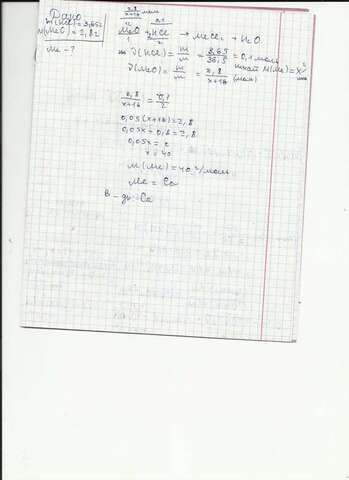 Дано
m(HCl)=3,65г
m(MeO)=2,8г
Me - ?
2,8/x+16 моль 0,1
MeO + 2HCl → MeCl₂ + H₂O
1 2
ν(HCl) = m/M = 3,65/36,5 = 0,1 моль
ν(MeO) = m/M = 2,8/x+16 (моль) нехай M(Me) = x г/моль
2,8/x+16 = 0,1/2
0,05(x+16)=2,8
0,05x + 0,8 = 2,8
0,05x = 2
x = 40
M(Me) = 40 г/моль
Me = Ca
В-дь: Ca